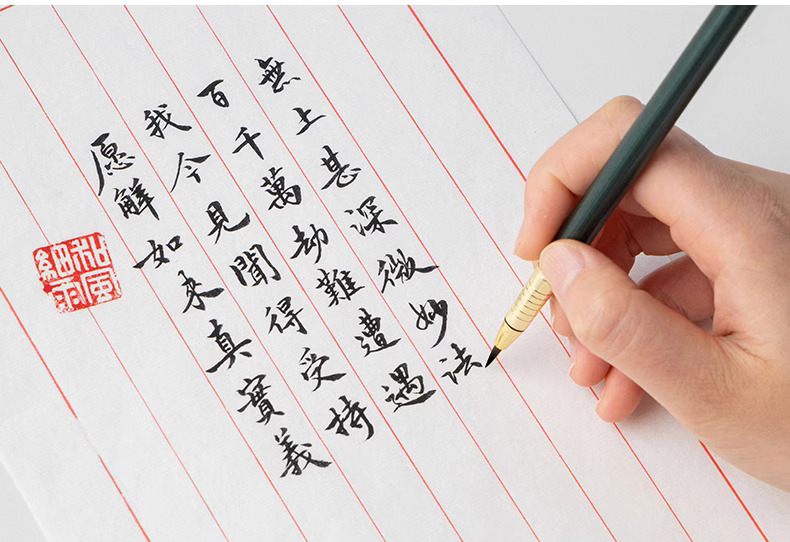 無上甚深微妙法
百千萬劫難遭遇
我今見聞得受持
愿解如来真實義
和風
細雨